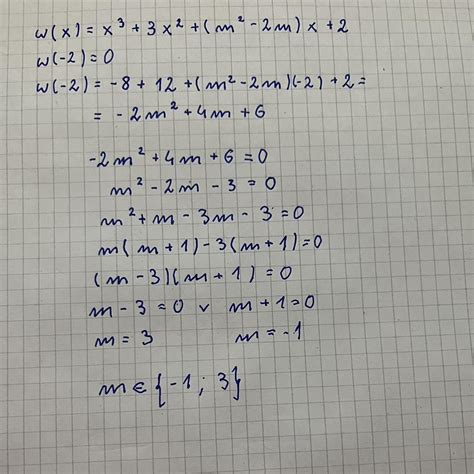 w(x) = x³ + 3x² + (m² - 2m)x + 2
w(-2) = 0
w(-2) = -8 + 12 + (m² - 2m)(-2) + 2 =
= -2m² + 4m + 6
-2m² + 4m + 6 = 0
m² - 2m - 3 = 0
m² + m - 3m - 3 = 0
m(m + 1) - 3(m + 1) = 0
(m - 3)(m + 1) = 0
m - 3 = 0 ∨ m + 1 = 0
m = 3 m = -1
m ∈ {-1 ; 3}